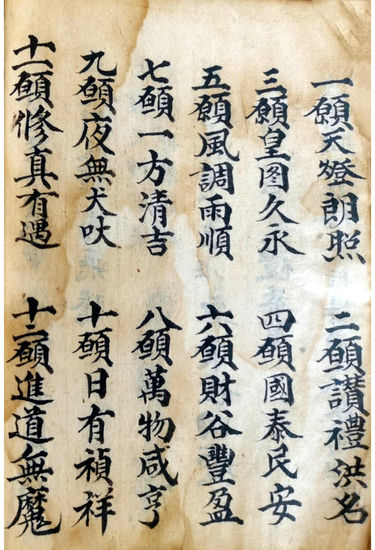 一願天燈朗照 二願讃禮洪名
三願皇图久永 四願國泰民安
五願風調雨順 六願財谷豐盈
七願一方清吉 八願萬物咸亨
九願夜無犬吠 十願日有禎祥
十一願修真有遇 十二願進道無魔